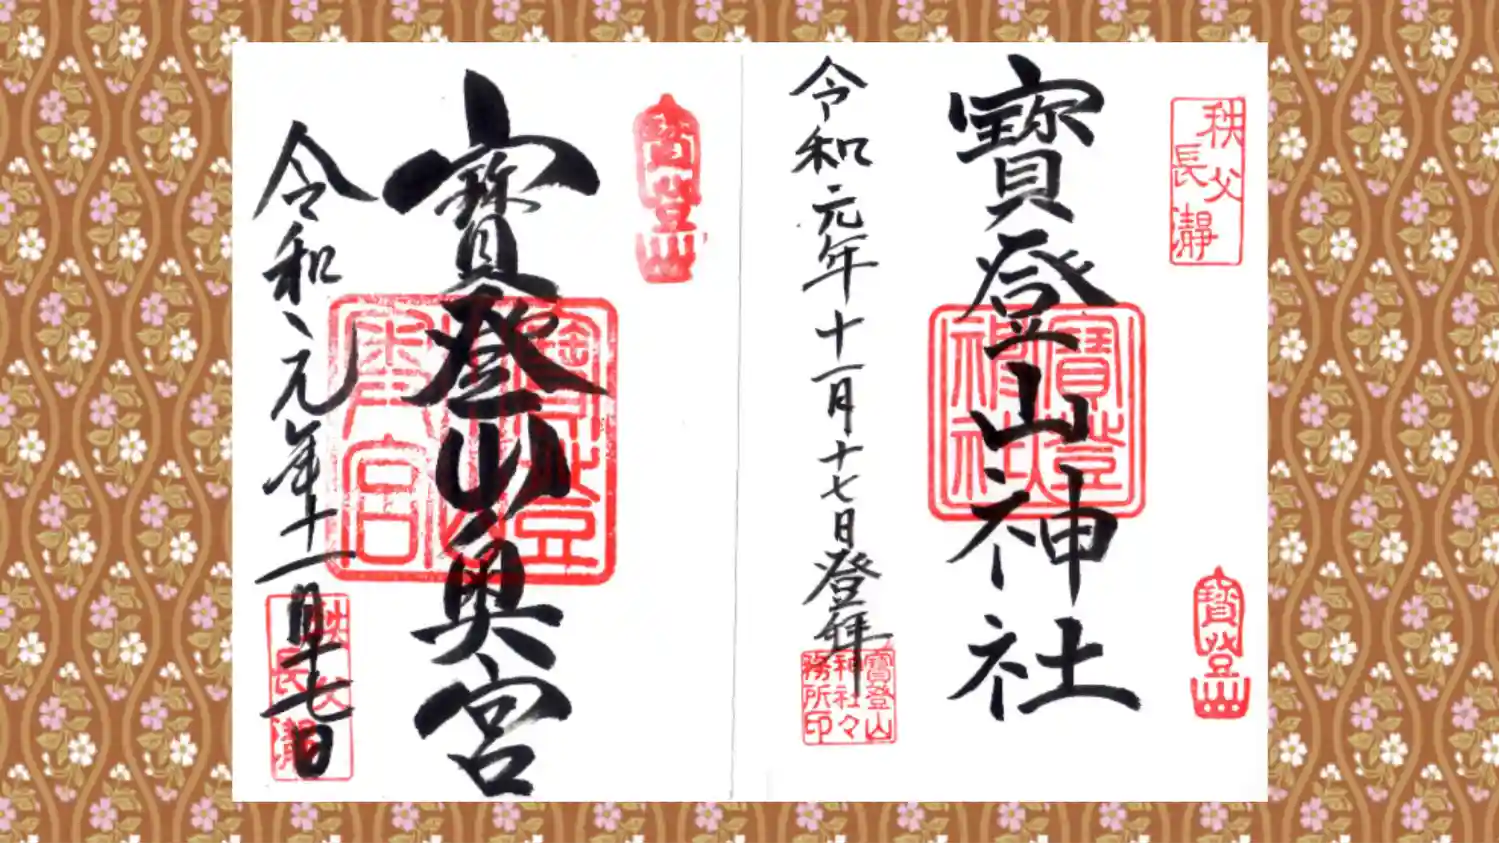 秩父
長瀞
寳登山神社
寳登山
神社
寳登
寳登山
令和元年十一月十七日登拜
寳登山
神社々
務所印
寳登山
寳登山奥宮
奥宮
令和元年十一月十七日
秩父
長瀞